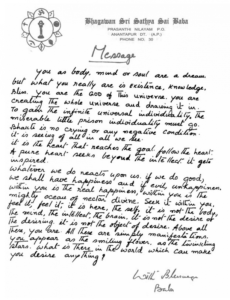 Bhagawan Sri Sathya Sai Baba
PRASANTHI NILAYAM P.O.
ANANTAPUR DT. (A.P.)
PHONE NO. 30
Message
You as body, mind or soul are a dream
but what you really are is existence, knowledge,
bliss. You are the God of this universe. You are
creating the whole universe and drawing it in.
To gain the infinite universal individuality, the
miserable little prison individuality must go.
Bhakti is no crying or any negative condition
it is seeing of all in all we see.
it is the heart that reaches the goal follow the heart.
A pure heart seeks beyond the intellect it gets
inspired.
Whatever we do reacts upon us. If we do good,
we shall have happiness and if evil, unhappiness.
Within you is the real happiness, within you is the
mighty ocean of nectar divine. Seek it within you,
feel it, feel it, it is here, the self, it is not the body,
the mind, the intellect, the brain, it is not the desire of
the desiring, it is not the object of desire. Above all
these, you are. All these are simply manifestations.
You appear as the smiling flower, as the twinkling
stars. What is there in the world which can make
you desire anything?
With Blessings
Baba